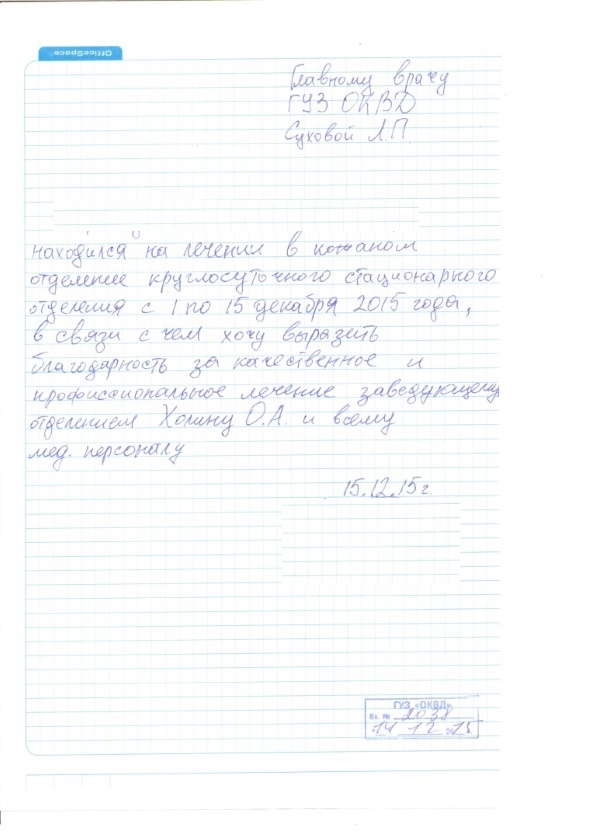 OfficeSpace
Главному врачу
ГУЗ ОКВД
Суховой Л.П.
находился на лечении в кожаном
отделение круглосуточного стационарного
отделения с 1 по 15 декабря 2015 года,
в связи с чем хочу выразеть
благодарность за качественное и
профиссиональное лечение заведующему
отделением Холину О.А. и всему
мед. персоналу
15.12.15г
ГУЗ «ОКВД»
Вх. № 2038
14 12 2015